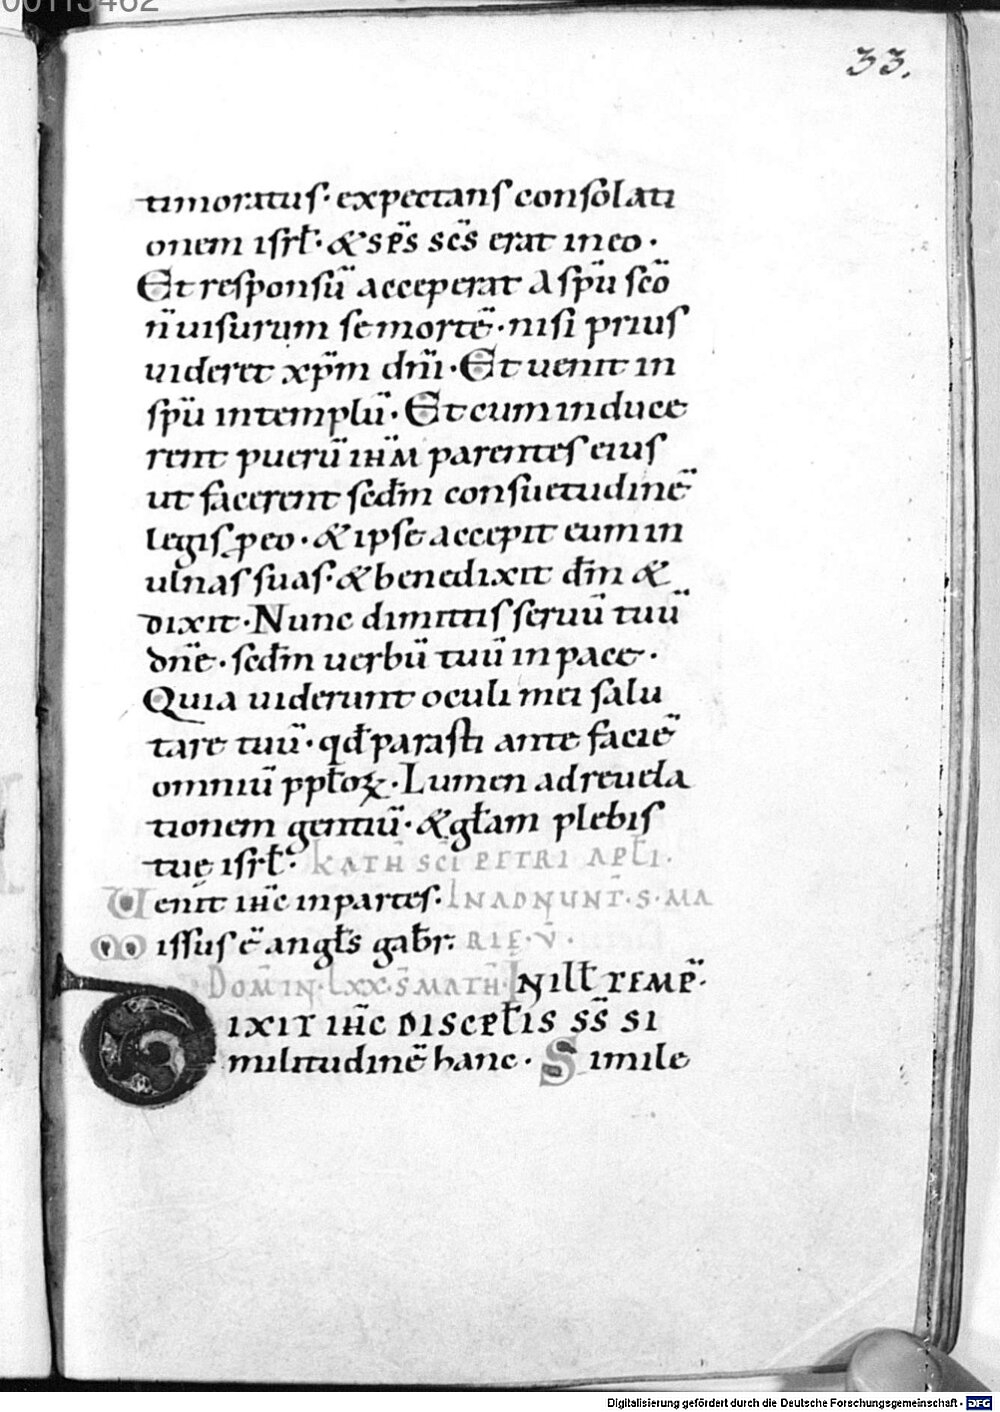 00113462
33.
timoratus· expectans consolati
onem isrł· & sp̄s sc̄s erat in eo·
Et responsū acceperat a spū scō
n̄ uisurum se mortē· nisi prius
uideret xp̄m dn̄i· Et uenit in
spū in templū· Et cum induce
rent puerū ihm̄ parentes eius
ut facerent scdm̄ consuetudinē
legis ꝓ eo· & ipse accepit eum in
ulnas suas· & benedixit dm̄ &
dixit· Nunc dimittis seruū tuū
dn̄e· scdm̄ uerbū tuū in pace·
Quia uiderunt oculi mei salu
tare tuū· qđ parasti ante faciē
omniū ppłoꝝ· Lumen ad reuela
tionem gentiū· & głam plebis
tuę isrł· KATH SCI PETRI APŁI·
Uenit ihc̄ in partes· IN ADNUNT̄·S·MA
Missus ē angłs gabr· RIĘ·V̄·
DOM̄ IN·LXX·S̄ MATH̄· IN ILŁ TEMP̄·
DIXIT IHC̄ DISCPŁIS SS̄ SI
militudinē hanc· Simile
Digitalisierung gefördert durch die Deutsche Forschungsgemeinschaft - DFG